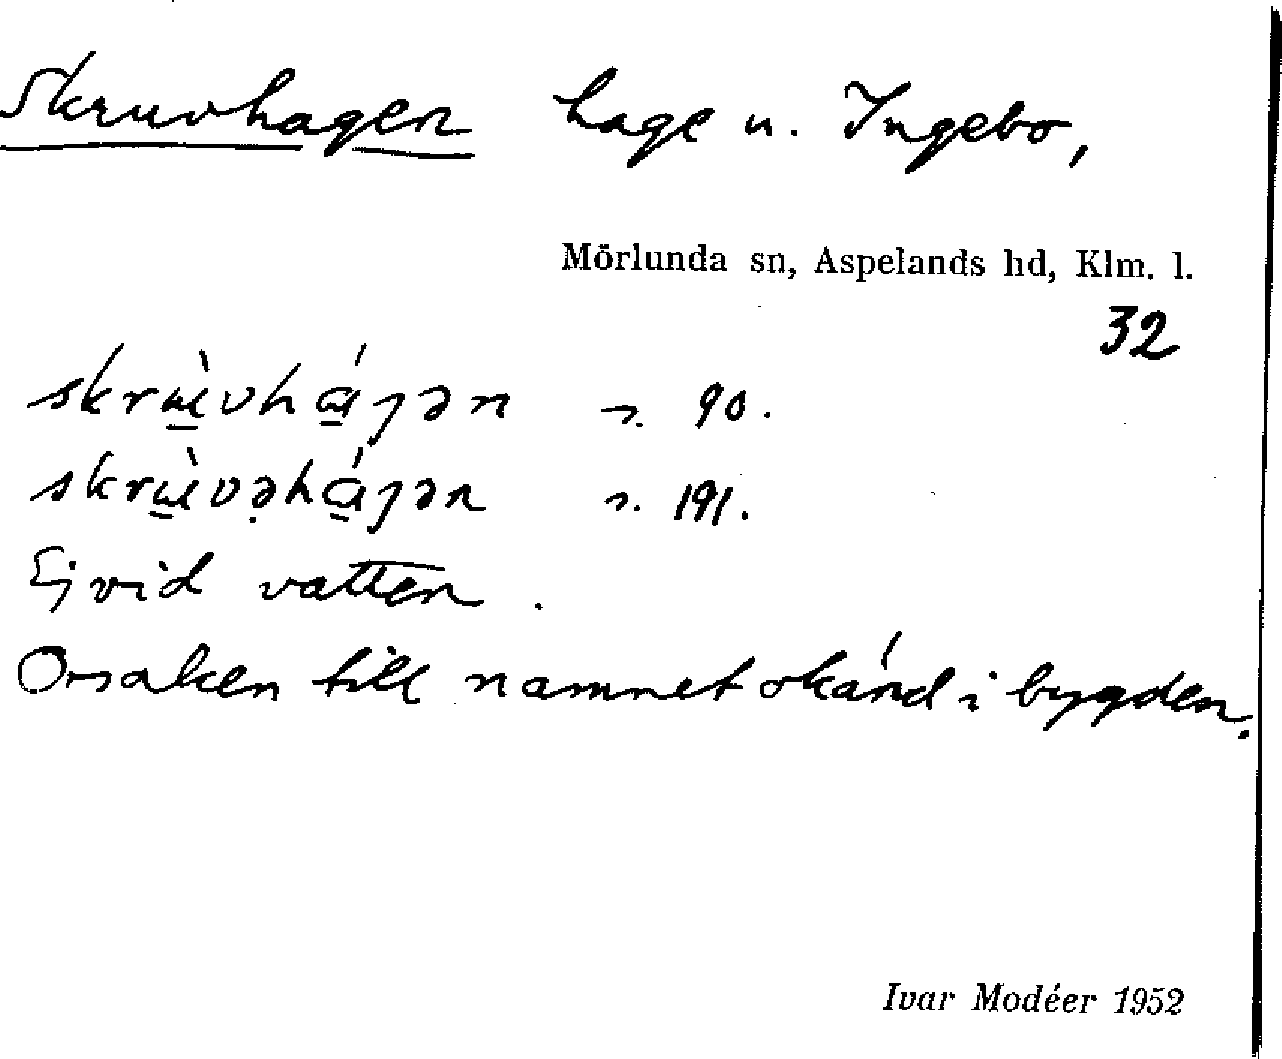 Skruvhagen hage u. Ingebo,
Mörlunda sn, Aspelands hd, Klm. l.
32
skrɯ̱̀vhɑ̱́ȷən s. 90.
skrɯ̱̀və̣hɑ̱́ȷən s. 191.
Ej vid vatten.
Orsaken till namnet okänd i bygden.
Ivar Modéer 1952